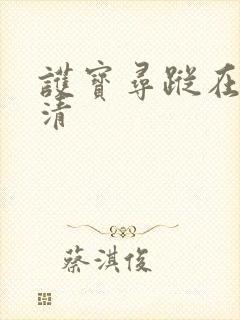 護寶尋蹤在
清
蔡淇俊